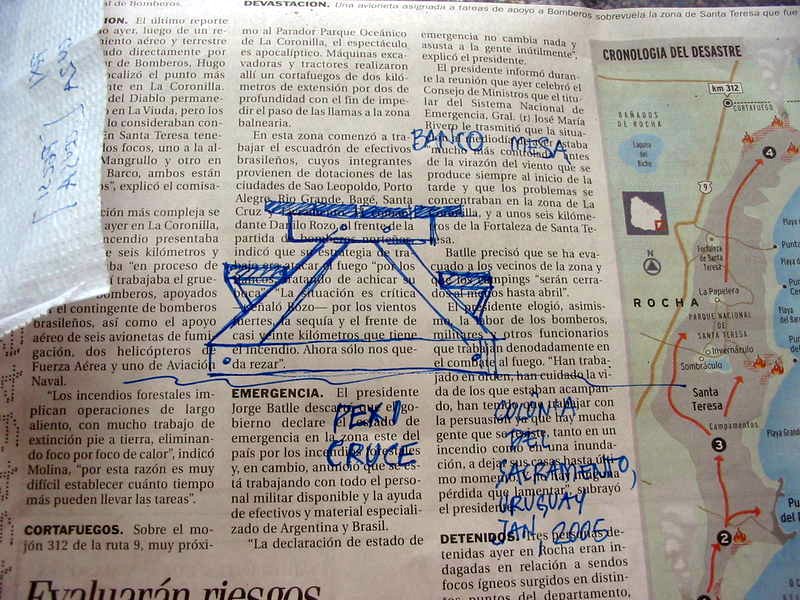 al de Bomberos.
DEVASTACION. Una avioneta asignada a tareas de apoyo a Bomberos sobrevuela la zona de Santa Teresa que fue
CION. El último reporte
no ayer, luego de un re-
miento aéreo y terrestre
do directamente por
or de Bomberos, Hugo
ocalizó el punto más
te en La Coronilla.
del Diablo permane-
en La Viuda, pero los
lo consideraban con-
En Santa Teresa tene-
tos focos, uno a la al-
Mangrullo y otro en
Barco, ambos están
os", explicó el comisa-
ción más compleja se
ayer en La Coronilla,
incendio presentaba
e seis kilómetros y
aba "en proceso de
í trabajaba el grue-
bomberos, apoyados
el contingente de bomberos
brasileños, así como el apoyo
aéreo de seis avionetas de fumi-
gación, dos helicópteros de
Fuerza Aérea y uno de Aviación
Naval.
"Los incendios forestales im-
plican operaciones de largo
aliento, con mucho trabajo de
extinción pie a tierra, eliminan-
do foco por foco de calor", indicó
Molina, "por esta razón es muy
difícil establecer cuánto tiempo
más pueden llevar las tareas".
CORTAFUEGOS. Sobre el mo-
jón 312 de la ruta 9, muy próxi-
mo al Parador Parque Oceánico
de La Coronilla, el espectáculo
es apocalíptico. Máquinas exca-
vadoras y tractores realizaron
allí un cortafuegos de dos kiló-
metros de extensión por dos de
profundidad con el fin de impe-
dir el paso de las llamas a la zona
balnearia.
En esta zona comenzó a tra-
bajar el escuadrón de efectivos
brasileños, cuyos integrantes
provienen de dotaciones de las
ciudades de Sao Leopoldo, Porto
Alegre, Rio Grande, Bagé, Santa
Cruz
dante Darilo Rozo, al frente de la
partida de bomberos porteños
indicó que su estrategia de tra-
fuego "por los
flancos, tratando de achicar su
boca". "La situación es crítica
señaló Rozo— por los vientos
fuertes, la sequía y el frente de
casi veinte kilómetros que tiene
el incendio. Ahora sólo nos que-
da rezar".
EMERGENCIA. El presidente
Jorge Batlle descartó que el go-
bierno declare el estado de
emergencia en la zona este del
país por los incendios forestales
y, en cambio, anunció que es-
tá trabajando con todo el per-
sonal militar disponible y la ayuda
de efectivos y material especiali-
zado de Argentina y Brasil.
"La declaración de estado de
emergencia no cambia nada y
asusta a la gente inútilmente",
explicó el presidente.
El presidente informó duran-
te la reunión que ayer celebró el
Consejo de Ministros que el titu-
lar del Sistema Nacional de
Emergencia, Gral. (r) José María
Rivero le trasmitió que la situa-
de la virazón del viento que se
produce siempre al inicio de la
tarde y que los problemas se
concentraban en la zona de La
Coronilla, y a unos seis kilóme-
tros de la Fortaleza de Santa Te-
resa.
Batlle precisó que se ha eva-
cuado a los vecinos de la zona y
que los campings "serán cerra-
dos al menos hasta abril".
El presidente elogió, asimis-
mo, la labor de los bomberos,
militares y otros funcionarios
que trabajan denodadamente en
el combate al fuego. "Han traba-
jado en orden, han cuidado la vi-
da de los que estaban acampan-
do, han tenido que trabajar con
la persuasión, que hay mucha
gente que se resiste, tanto en un
incendio como en una inunda-
ción, a dejar sus casas hasta últi-
mo momento
pérdida que lamentar", subrayó
el presidente.
DETENIDOS. Tres personas de-
tenidas ayer en Rocha eran in-
dagadas en relación a sendos
focos ígneos surgidos en distin-
tos puntos del departamento,
Evaluarán riesgos
BANCO MESA
PEXI
CRUCE
COLONIA
DEL
SACRAMENTO,
URUGUAY
JAN, 2005
CRONOLOGIA DEL DESASTRE
km 312
CORTAFUEGO
BAÑADOS
DE ROCHA
Laguna
del
Bicho
4
9
N
Fortaleza
de Santa
Teresa
La Papelera
ROCHA
PARQUE NACIONAL
DE SANTA TERESA
Invernáculo
Sombráculo
Santa
Teresa
Campamentos
3
2
1
Playa Grande